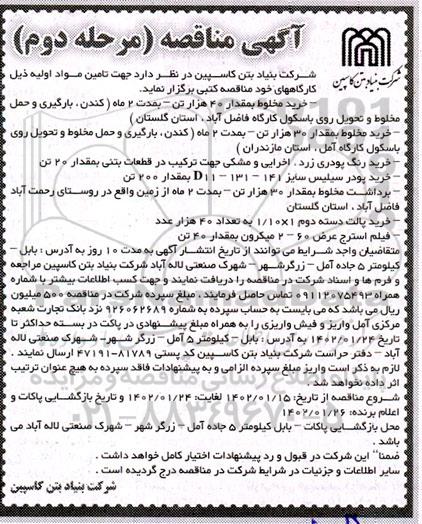 آگهی مناقصه (مرحله دوم)
شرکت بنیاد بتن کاسپین
شرکت بنیاد بتن کاسپین در نظر دارد جهت تامین مواد اولیه ذیل
کارگاههای خود مناقصه کتبی برگزار نماید.
- خرید مخلوط بمقدار ۴۰ هزار تن - بمدت ۲ ماه ( کندن ، بارگیری و حمل
مخلوط و تحویل روی باسکول کارگاه فاضل آباد ، استان گلستان )
- خرید مخلوط بمقدار ۳۰ هزار تن - بمدت ۲ ماه ( کندن ، بارگیری و حمل مخلوط و تحویل روی
باسکول کارگاه آمل ، استان مازندران )
- خرید رنگ پودری زرد ، اخرایی و مشکی جهت ترکیب در قطعات بتنی بمقدار ۲۰ تن
- خرید پودر سیلیس سایز ۱۴۱ - ۱۳۱ - D11 بمقدار ۲۰۰ تن
- برداشت مخلوط بمقدار ۳۰ هزار تن - بمدت ۲ ماه از زمین واقع در روستای رحمت آباد
فاضل آباد ، استان گلستان
- خرید پالت دسته دوم ۱/۱۰×۱ به تعداد ۴۰ هزار عدد
- فیلم استرچ عرض ۶۰ - ۲ میکرون بمقدار ۴۰ تن
متقاضیان واجد شرایط می توانند از تاریخ انتشار آگهی به مدت ۱۰ روز به آدرس : بابل -
کیلومتر ۵ جاده آمل - زرگرشهر - شهرک صنعتی لاله آباد شرکت بنیاد بتن کاسپین مراجعه
و فرم ها و اسناد شرکت در مناقصه را دریافت نمایند و جهت کسب اطلاعات بیشتر با شماره
همراه ۰۹۱۱۲۰۷۵۴۹۳ تماس حاصل فرمایند . مبلغ سپرده شرکت در مناقصه ۵۰۰ میلیون
ریال می باشد که می بایست به حساب سپرده به شماره ۹۲۶۰۶۲۶۸۹ نزد بانک تجارت شعبه
مرکزی آمل واریز و فیش واریزی را به همراه مبلغ پیشنهادی در پاکت در بسته حداکثر تا
تاریخ ۱۴۰۲/۰۱/۲۴ به آدرس : بابل - کیلومتر ۵ آمل - زرگر شهر - شهرک صنعتی لاله
آباد - دفتر حراست شرکت بنیاد بتن کاسپین کد پستی ۸۱۷۸۹-۴۷۱۹۱ ارسال نمایند .
لازم به ذکر است واریز مبلغ سپرده الزامی و به پیشنهادات فاقد سپرده به هیچ عنوان ترتیب
اثر داده نخواهد شد .
شروع مناقصه از تاریخ: ۱۴۰۲/۰۱/۱۵ لغایت: ۱۴۰۲/۰۱/۲۴ و تاریخ بازگشایی پاکات و
اعلام برنده: ۱۴۰۲/۰۱/۲۶
محل بازگشایی پاکات - بابل کیلومتر ۵ جاده آمل - زرگر شهر - شهرک صنعتی لاله آباد می
باشد .
ضمنا" این شرکت در قبول و رد پیشنهادات اختیار کامل خواهد داشت .
سایر اطلاعات و جزئیات در شرایط شرکت در مناقصه درج گردیده است .
شرکت بنیاد بتن کاسپین